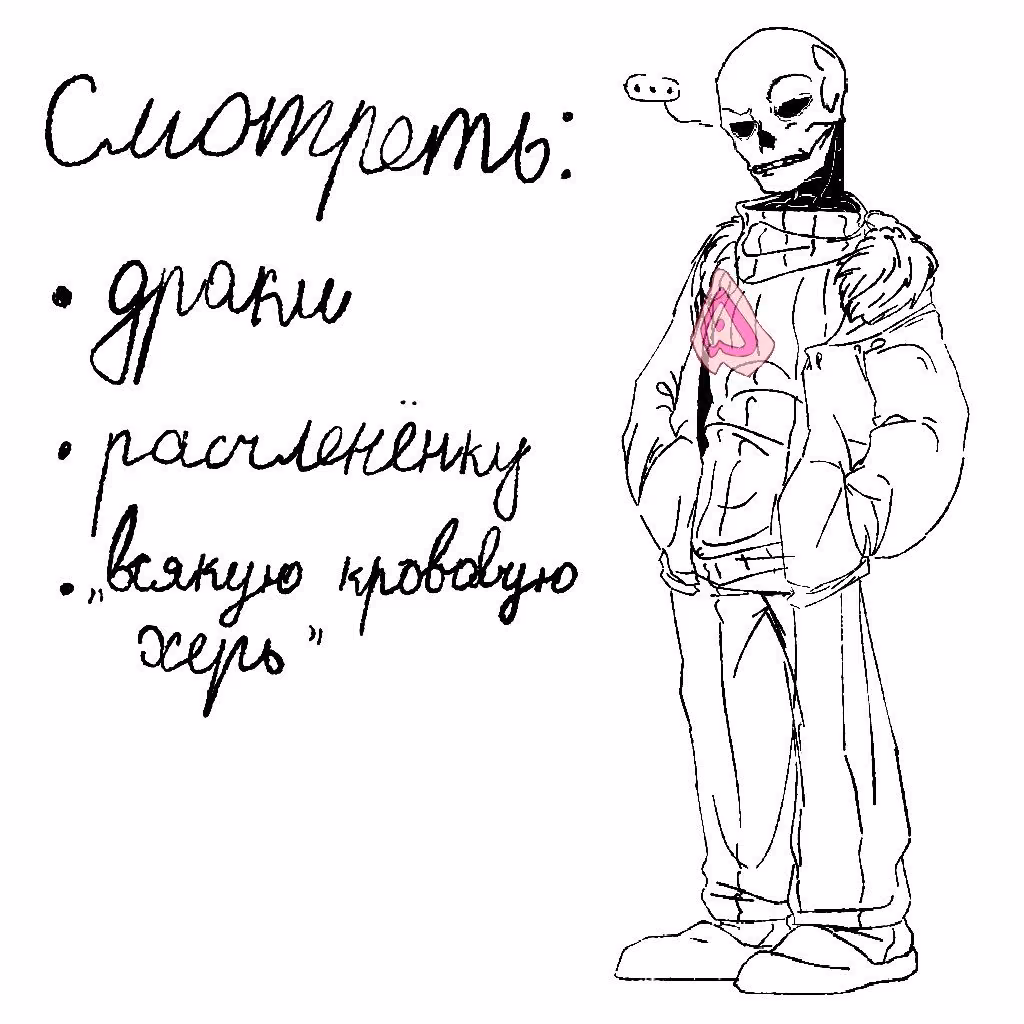 Смотреть:
• драки
• расчленёнку
• „всякую кровавую
херь”
...